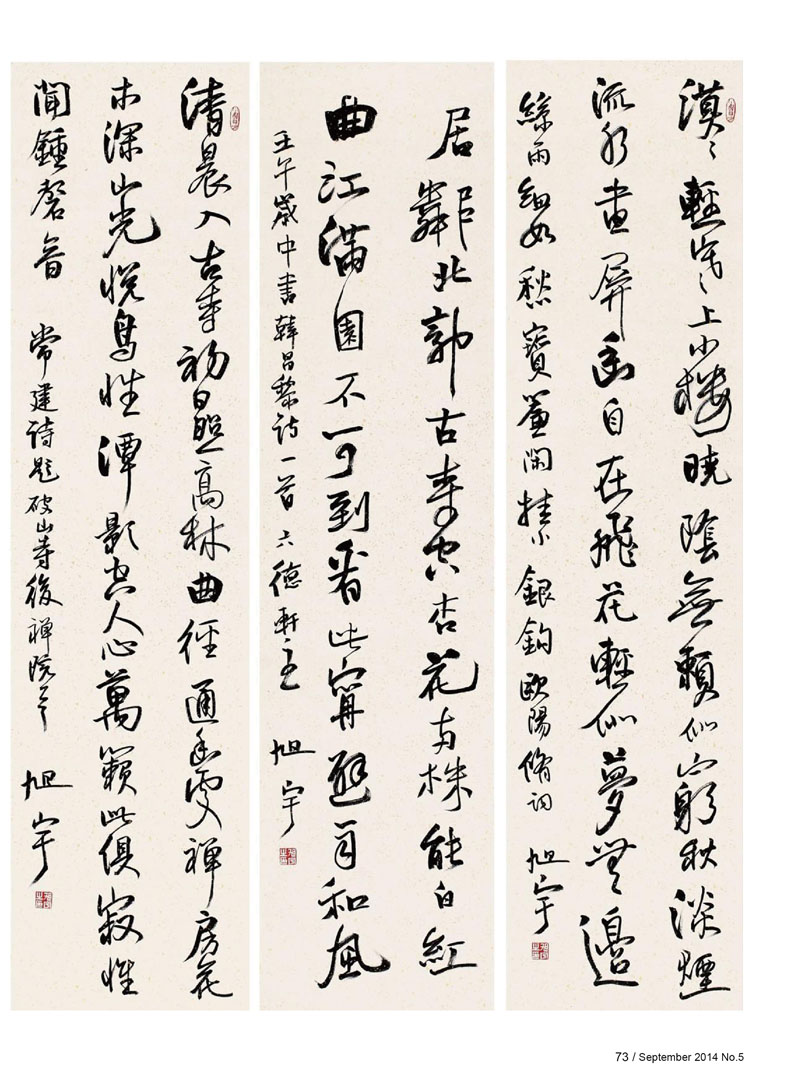 漠〻輕寒上小樓曉陰無賴似窮秋淡煙
流水畫屏幽自在飛花輕似夢無邊
絲雨細如愁寶簾閑挂小銀鉤歐陽脩詞 旭宇
居鄰北郭古寺空杏花兩株能白紅
曲江滿園不可到看此寧避雨和風
壬午歲中書韓昌黎詩一首六德軒主 旭宇
清晨入古寺初日照高林曲徑通幽處禪房花
木深山光悅鳥性潭影空人心萬籟此俱寂惟
聞鍾磬音 常建詩題破山寺後禪院 旭宇
73 / September 2014 No.5